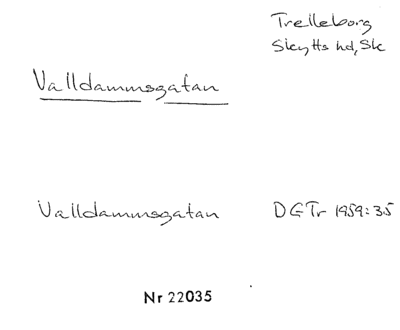 Trelleborg
Skytts hd, Sk
Valldammsgatan
Valldammsgatan DGTr 1959:35
Nr 22035